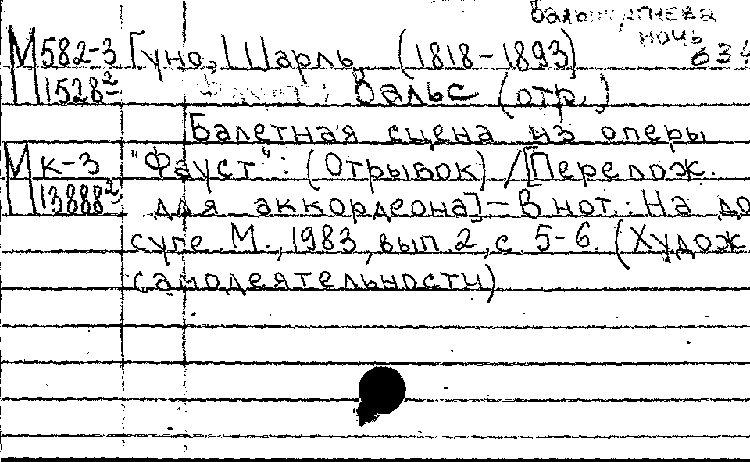 Вальпургиева
ночь
М582-3 Гуно, Шарль (1818-1893) 634
П1528² Фауст: Вальс (отр.)
Балетная сцена из оперы
М к-3 "Фауст": (Отрывок) / [Перелож.
П13888² для аккордеона] - В нот.: На до
суге. М., 1983, вып. 2, с. 5-6. (Худож.
самодеятельности)